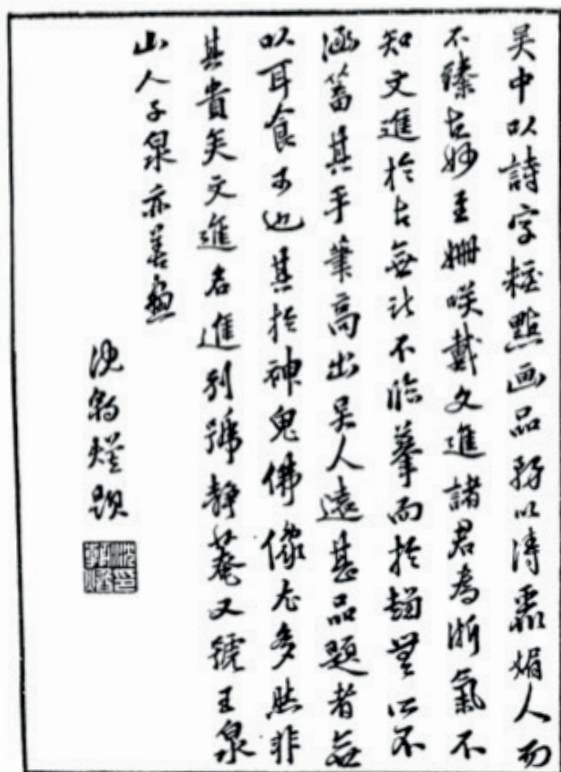 吳中以詩字粧點画品務以清麗媚人而
不臻古妙至姍咲戴文進諸君為浙氣不
知文進於古無所不臨摹而於趙無所不
涵蓄其手筆高出吳人遠甚品題者無
以耳食可也其於神鬼佛像尤多然非
其貴矣文進名進別號靜菴又號玉泉
山人子泉亦善畫
沈朝煥題